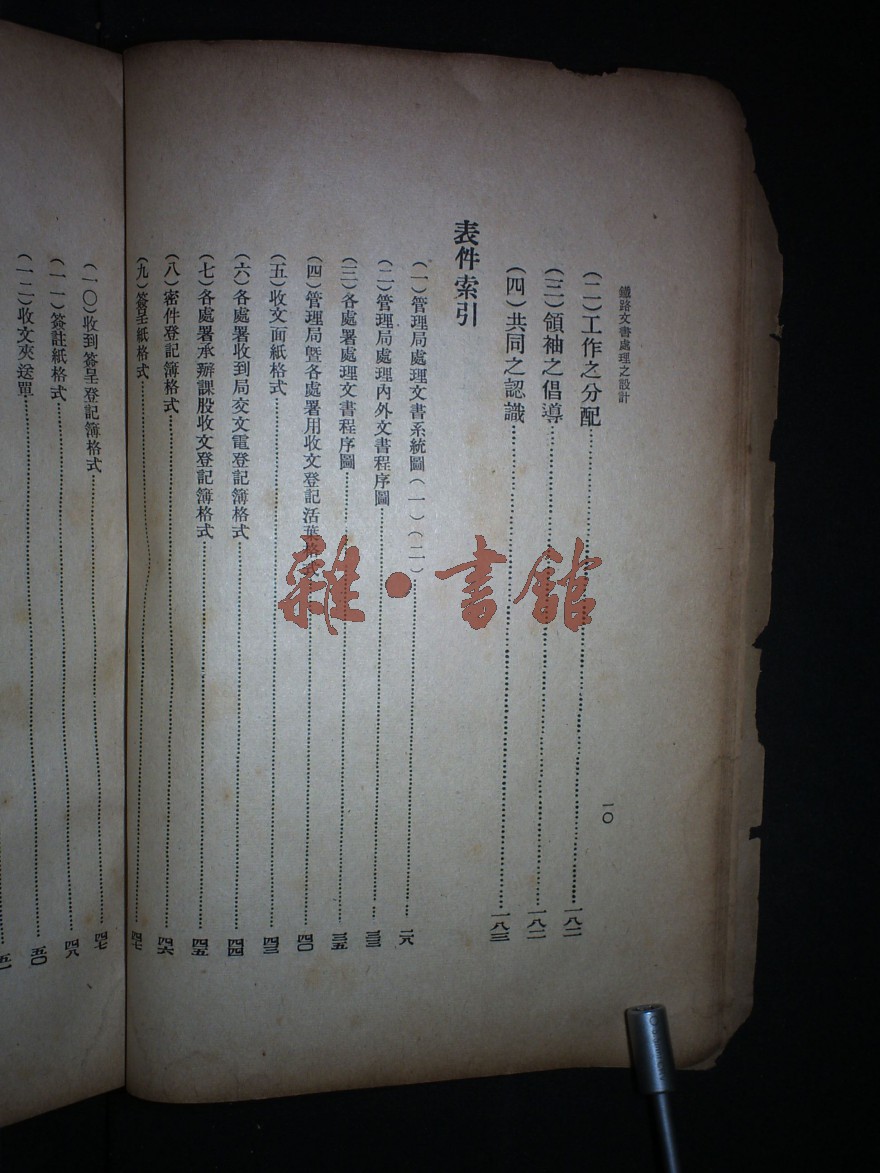 鐵路文書處理之設計
一〇
(二)工作之分配……一八二
(三)領袖之倡導……一八二
(四)共同之認識……一八三
表件索引
(一)管理局處理文書系統圖(一)(二)……二八
(二)管理局處理內外文書程序圖……三三
(三)各處署處理文書程序圖……三五
(四)管理局曁各處署用收文登記活葉格式……四〇
(五)收文面紙格式……四三
(六)各處署收到局交文電登記簿格式……四四
(七)各處署承辦課股收文登記簿格式……四五
(八)密件登記簿格式……四六
(九)簽呈紙格式……四七
(一〇)收到簽呈登記簿格式……四七
(一一)簽註紙格式……四八
(一二)收文夾送單……五〇
雜·書館